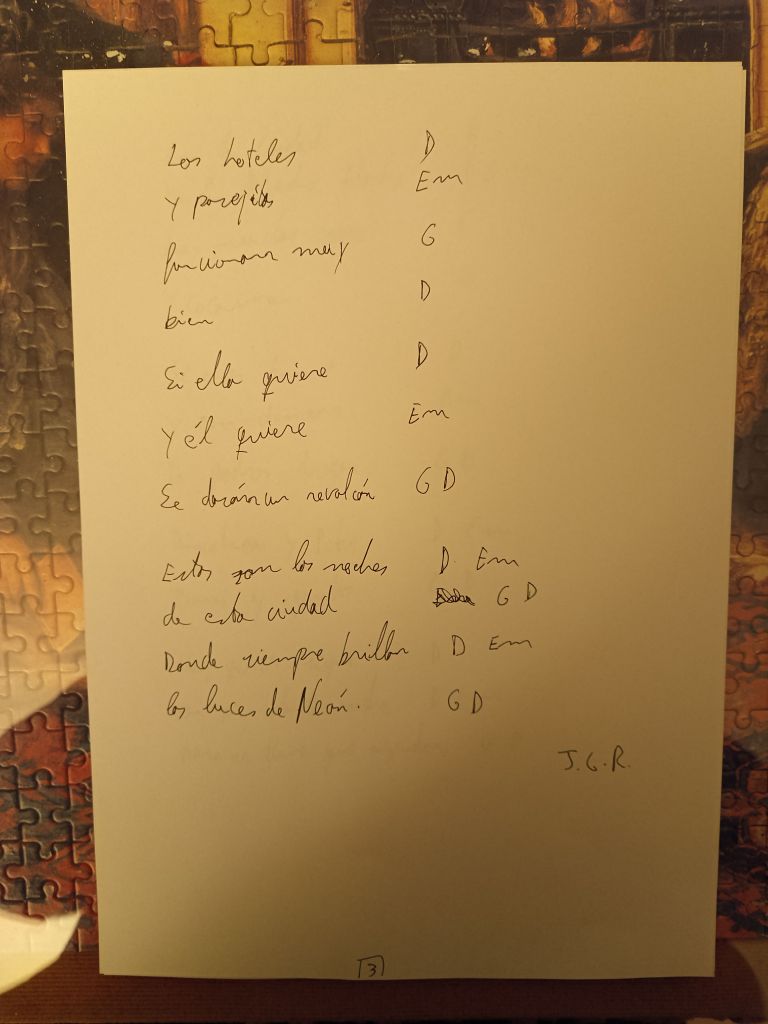 Los hoteles D
Y parejitas Em
funcionan muy G
bien D
Si ella quiere D
Y él quiere Em
Se darán un revolcón G D
Estas son las noches D Em
de esta ciudad G D
Donde siempre brillan D Em
las luces de Neón. G D
J.G.R.
3